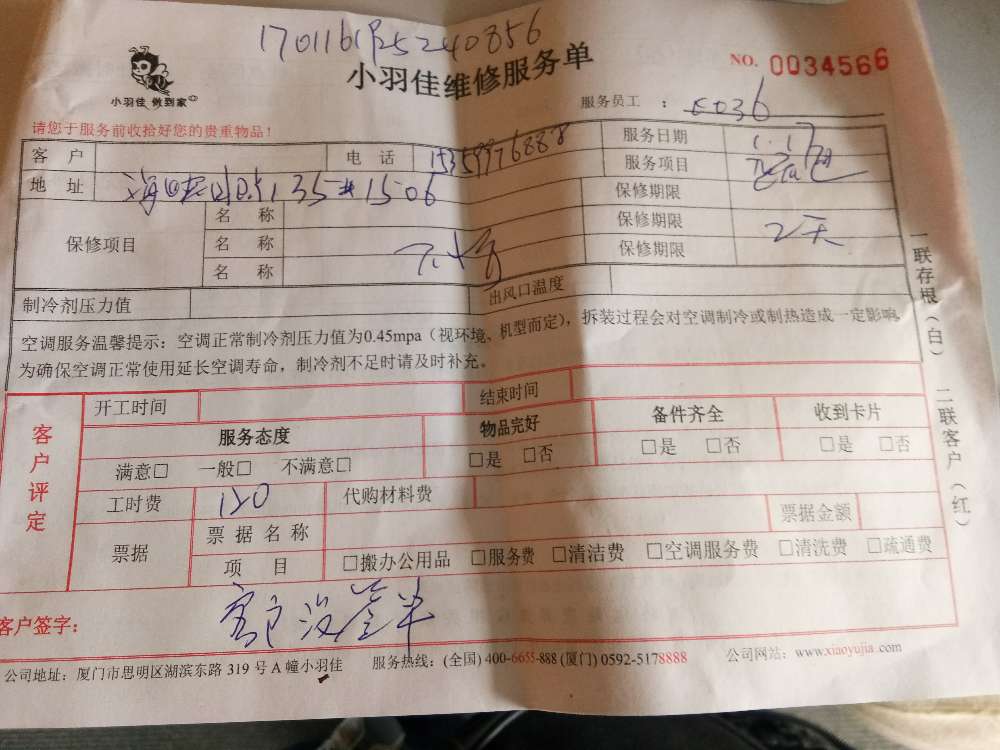 小羽佳 做到家
小羽佳维修服务单
NO. 0034566
服务员工 :
请您于服务前收拾好您的贵重物品!
客 户 电 话 服务日期 1.17
地 址 135#1506 服务项目
保修项目 名 称 保修期限
名 称 保修期限 2天
名 称 保修期限
制冷剂压力值 出风口温度
空调服务温馨提示:空调正常制冷剂压力值为0.45mpa(视环境、机型而定),拆装过程会对空调制冷或制热造成一定影响
为确保空调正常使用延长空调寿命,制冷剂不足时请及时补充。
一联存根(白) 二联客户(红)
客户评定
开工时间 结束时间
服务态度 物品完好 备件齐全 收到卡片
满意□ 一般□ 不满意□ □是 □否 □是 □否 □是 □否
工时费 120 代购材料费
票据 票 据 名 称 票据金额
项 目 □搬办公用品 □服务费 □清洁费 □空调服务费 □清洗费 □疏通费
客户签字:
公司地址:厦门市思明区湖滨东路 319 号 A 幢小羽佳 服务热线:(全国) 400-6655-888 (厦门) 0592-5178888 公司网站:www.xiaoyujia.com